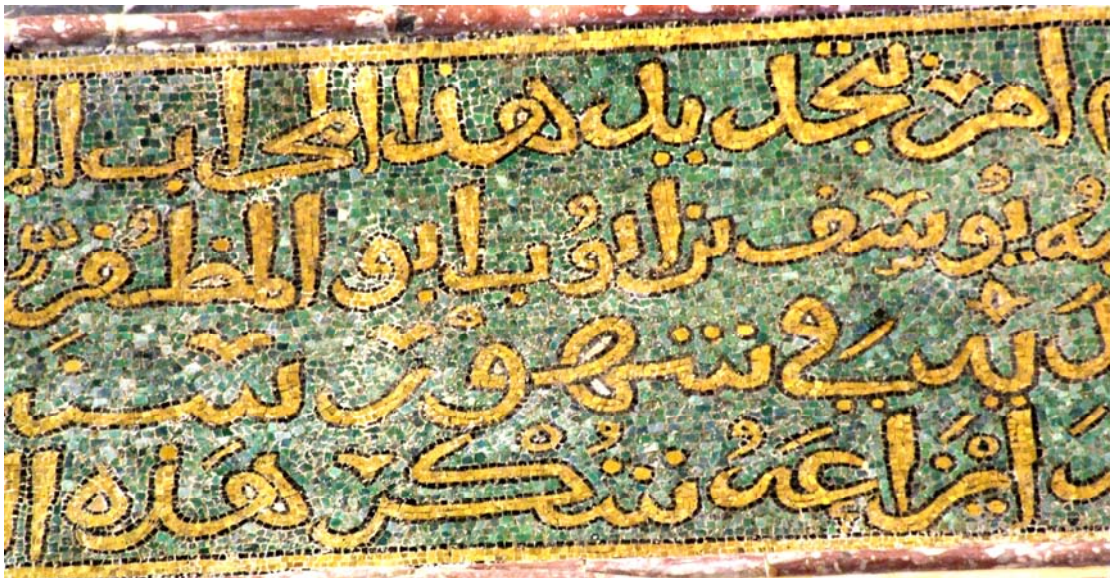 امر بتجديد هذا المحراب
يوسف بن ايوب ابو المظفر
يديه في شهور سنة
ايزاعه شكر هذه